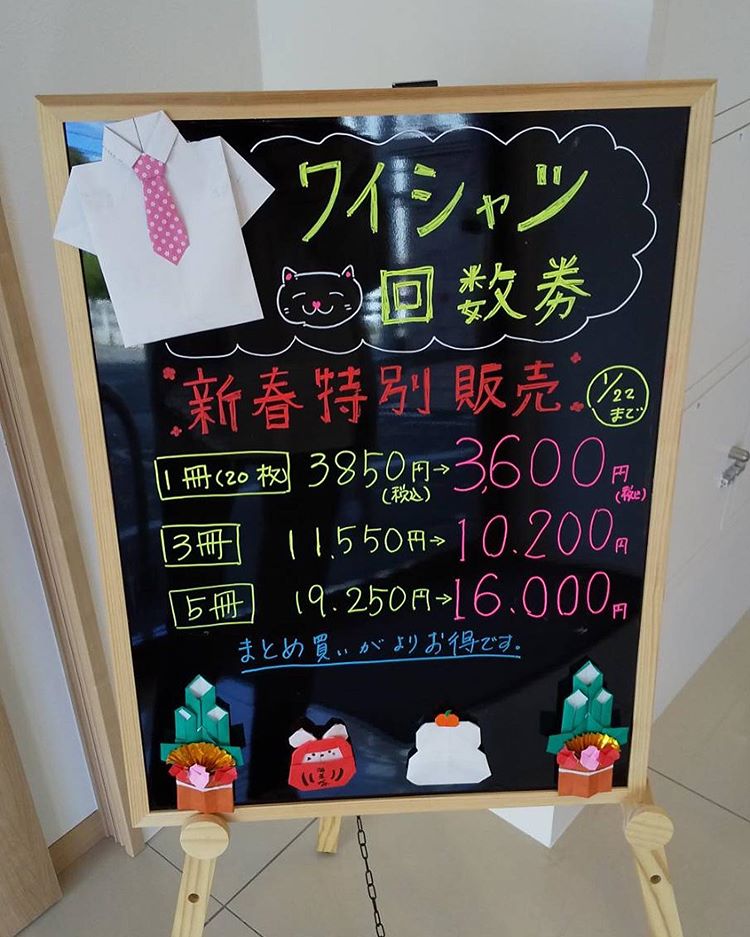 ワイシャツ
回数券
新春特別販売
1/22
まで
1冊(20枚) 3850円→3,600円
(税込) (税込)
3冊 11.550円→10.200円
5冊 19.250円→16.000円
まとめ買いがよりお得です。